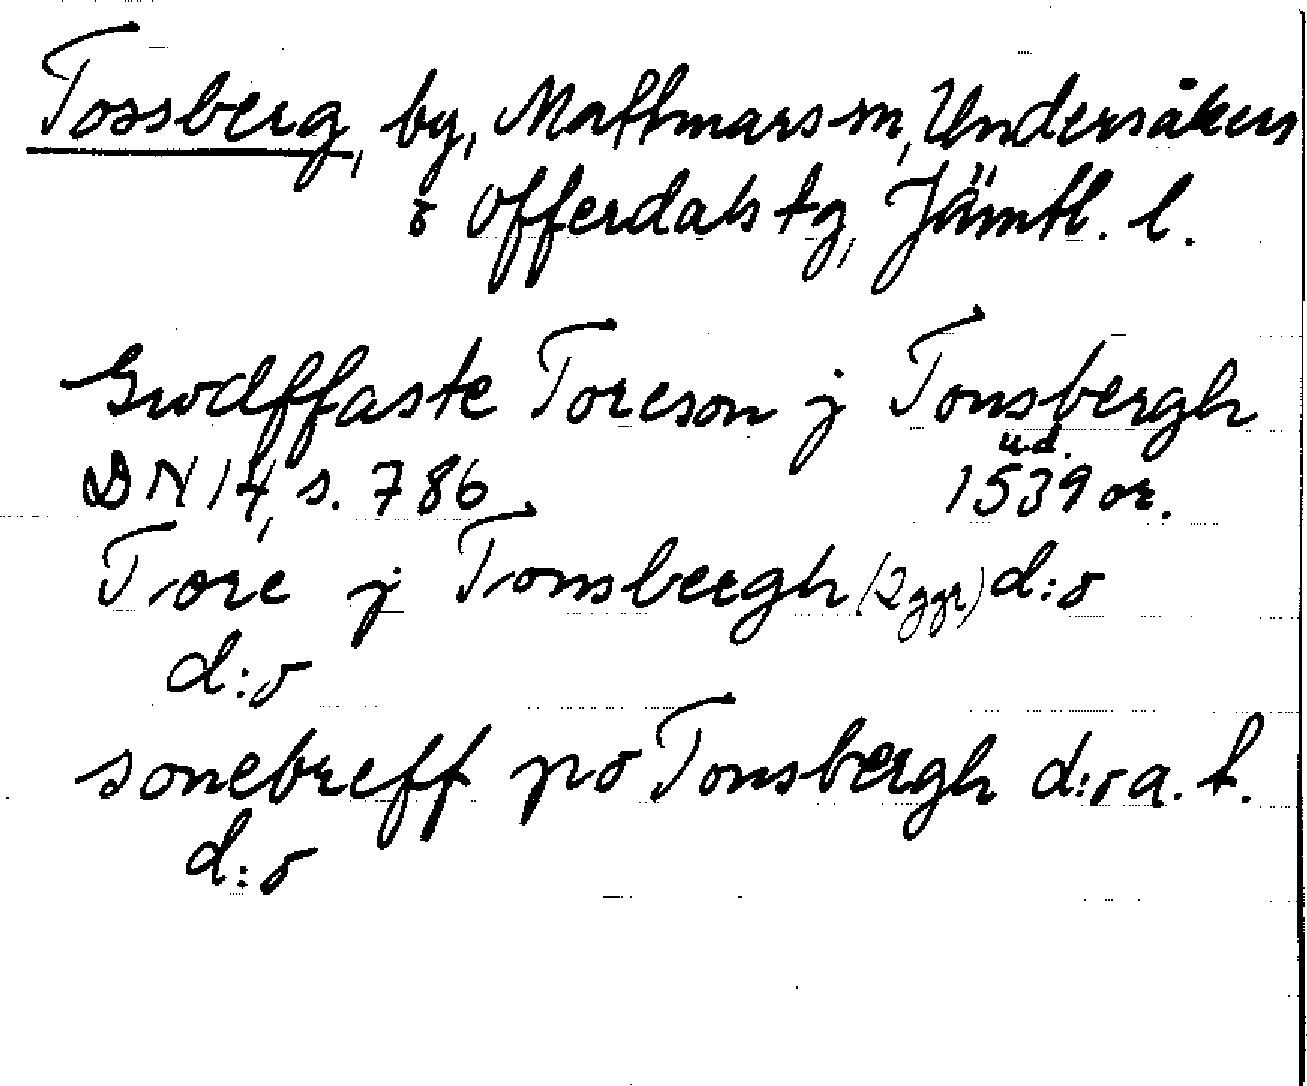 Tossberg, by, Mattmars sn, Undersåkers
o Offerdals tg, Jämtl. l.
Gudffaste Toreson j Tonsbergh
u.d.
DN 14, s. 786 1539 or.
Tore j Tonsbergh (2 ggr) d:o
d:o
sonebreff po Tonsbergh d:o a. t.
d:o